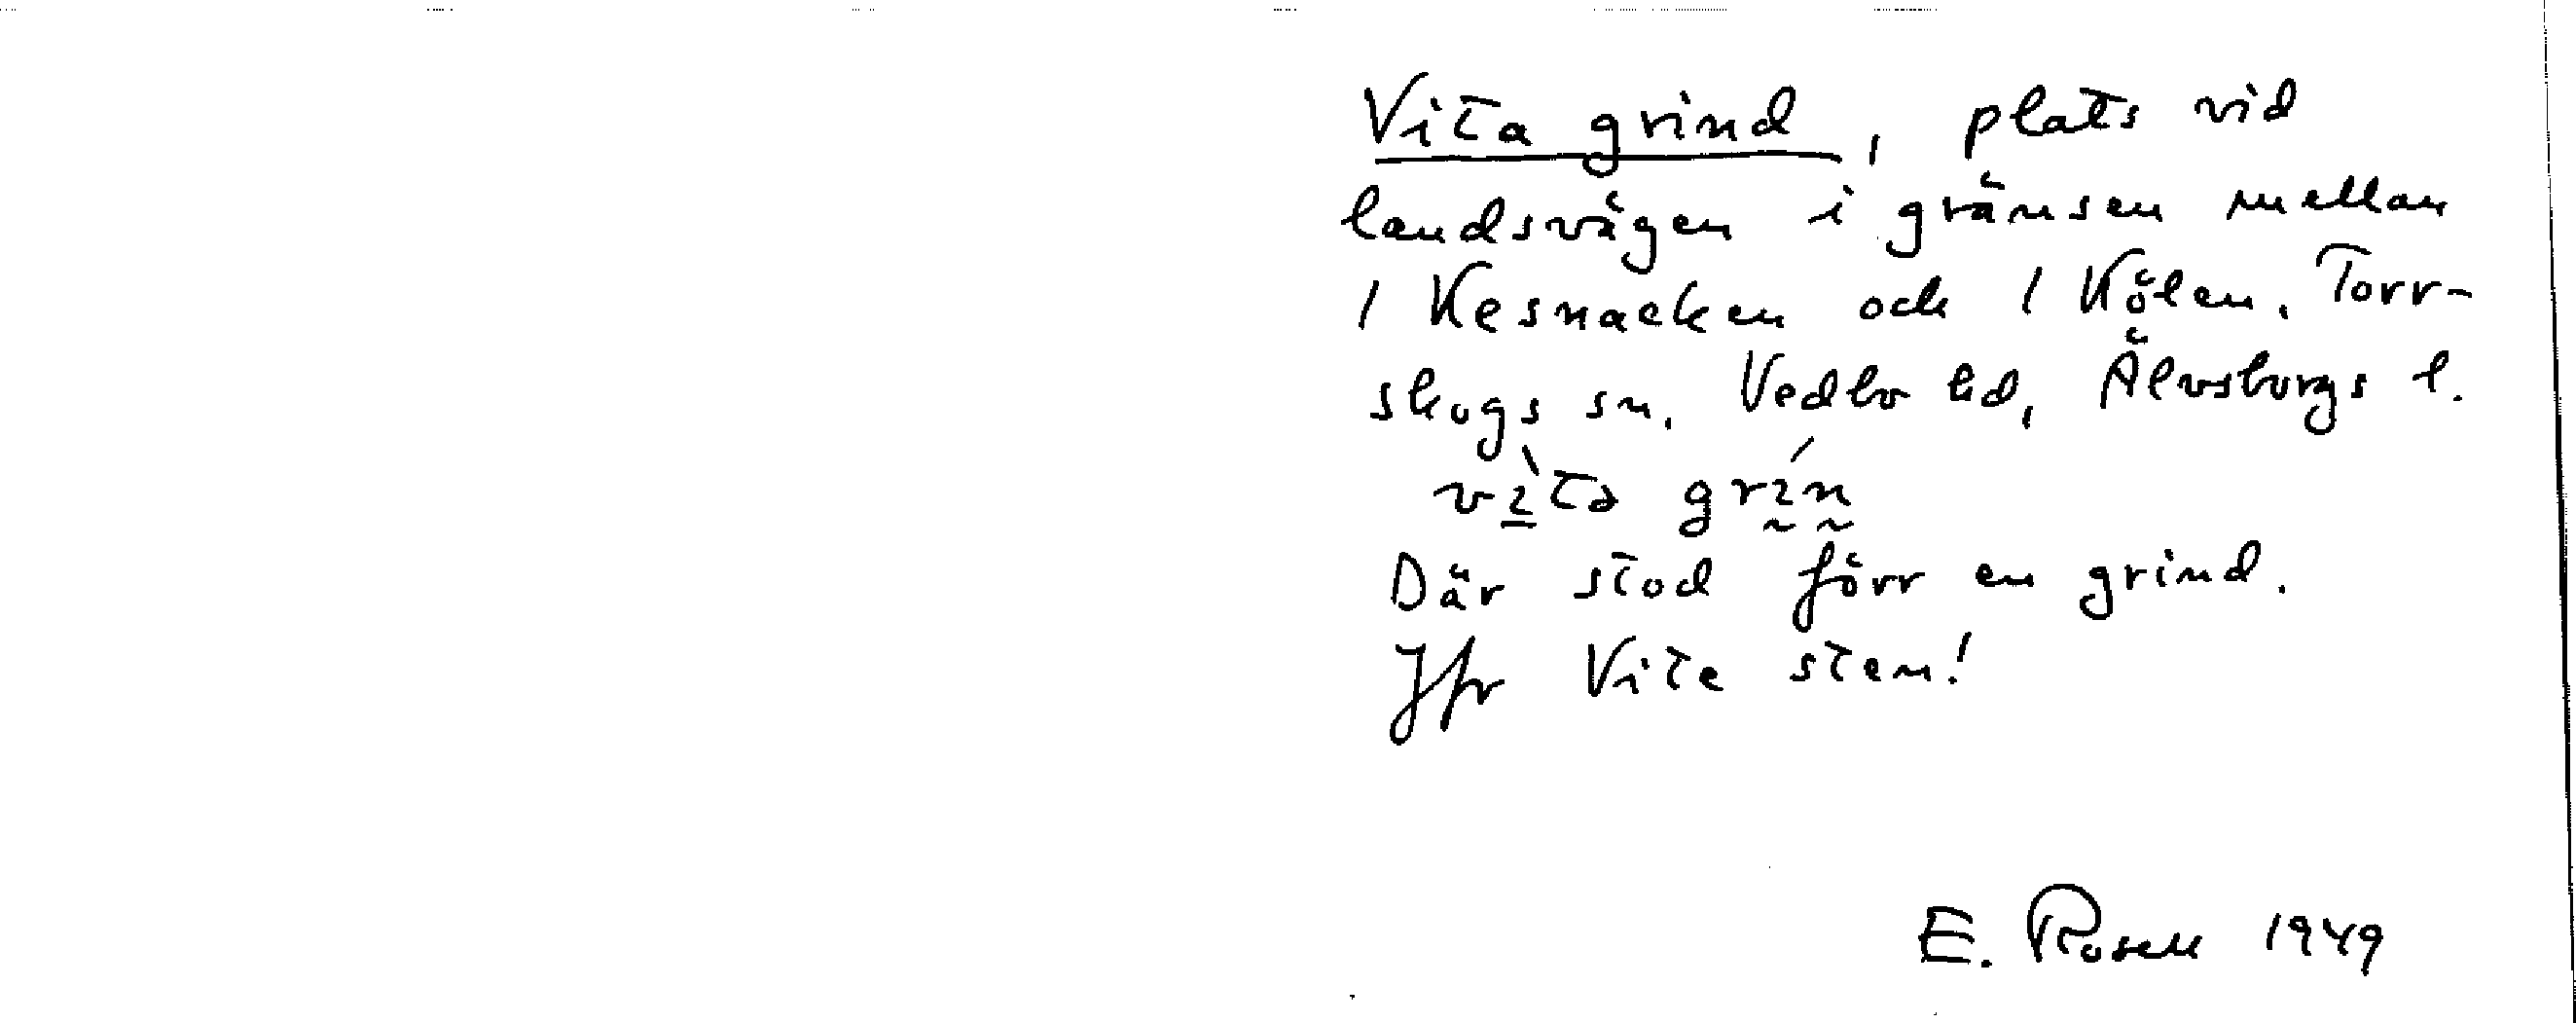 Vita grind, plats vid
landsvägen i gränsen mellan
1 Kesnacken och 1 Kölen. Torr-
skogs sn. Vedbo hd, Älvsborgs l.
vìtə grín
Där stod förr en grind.
Jfr Vite sten!
E. Rosell 1949